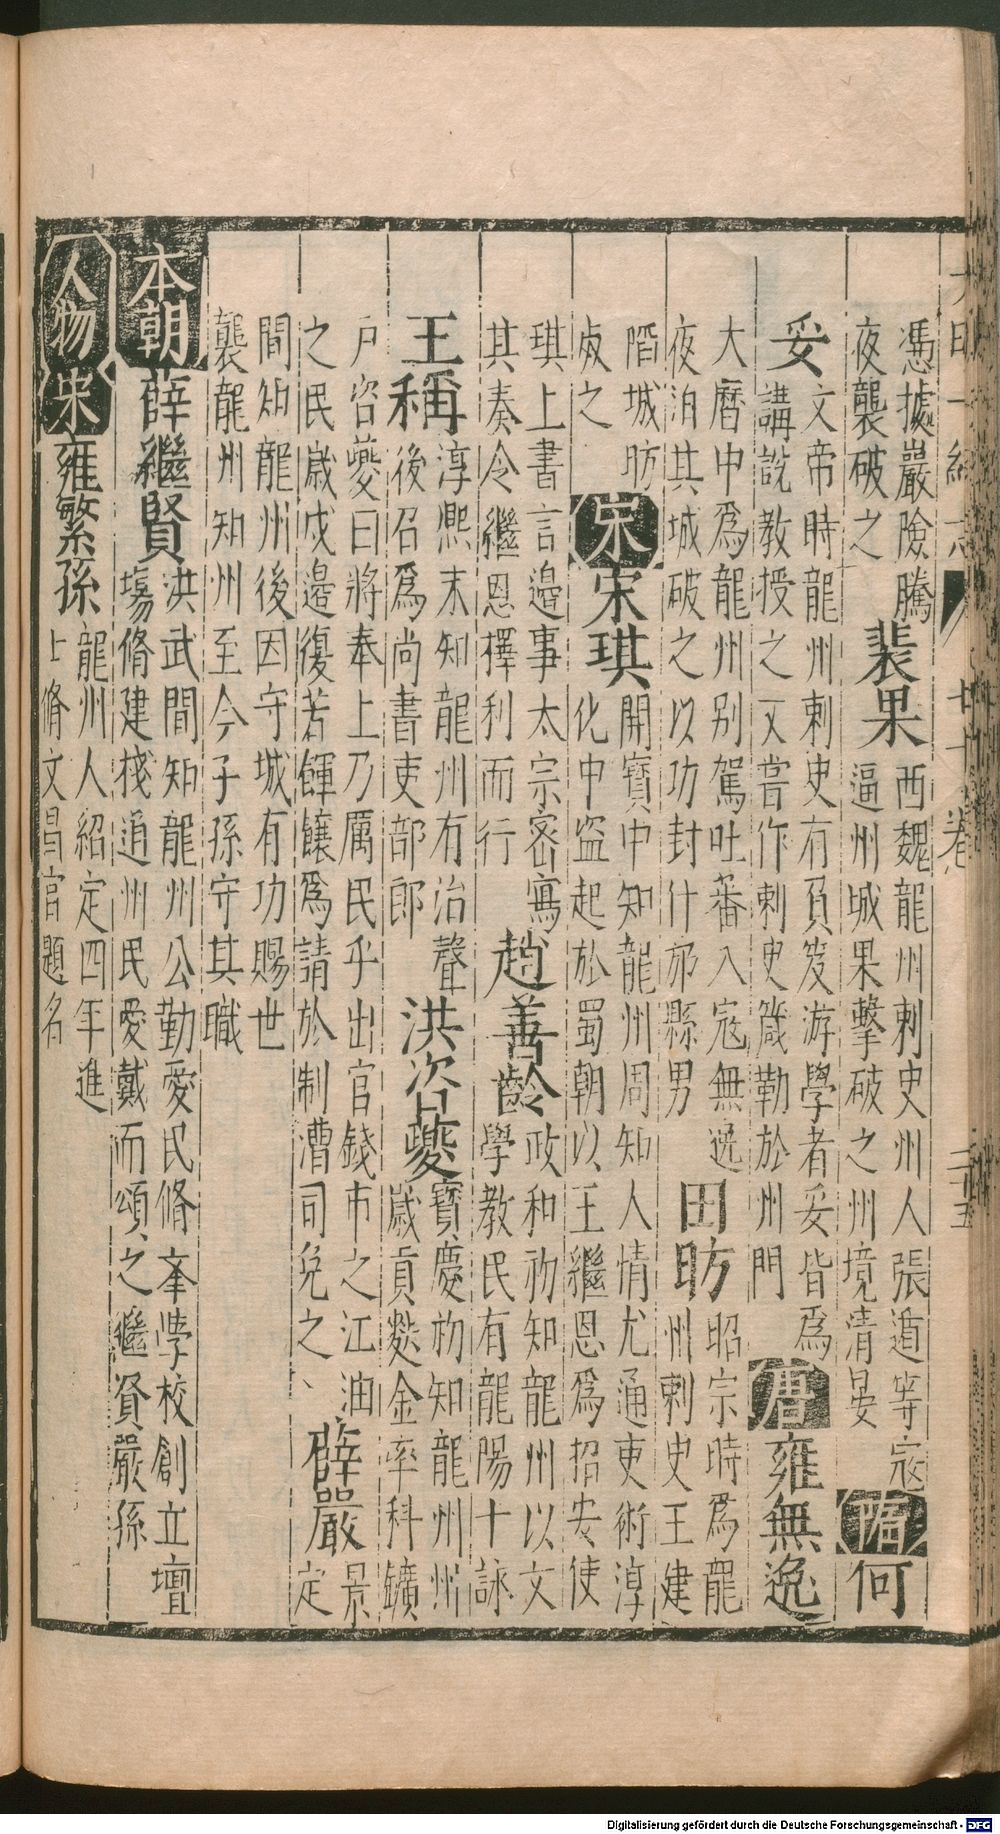 憑據嚴險騰
夜襲破之
裴果
西魏龍州刺史州人張遁等寇
逼州城果擊破之州境清晏
隋
何
妥
文帝時龍州刺史有負笈游學者妥皆爲
講說教授之又嘗作刺史箴勒於州門
唐
雍無逸
大曆中爲龍州别駕吐蕃入寇無逸
夜泊其城破之以功封什邡縣男
田昉
昭宗時爲龍
州刺史王建
䧟城昉
死之
宋
宋琪
開寳中知龍州周知人情尤通吏術淳
化中盗起於蜀朝以王繼恩爲招安使
琪上書言邊事太宗宻寫
其奏令繼恩擇利而行
趙善齡
政和初知龍州以文
學教民有龍陽十詠
王稱
淳熈末知龍州有治聲
後召爲尚書吏部郎
洪咨夔
寳慶初知龍州州
歲貢麩金率科鑛
戶咨夔曰將奉上乃厲民乎出官錢市之江油
之民歲戍邊復苦餫饟爲請於制漕司免之
薛嚴
景
定
間知龍州後因守城有功賜世
襲龍州知州至今子孫守其職
本朝
薛繼賢
洪武間知龍州公勤愛民脩
學校創立壇
塲脩建棧道州民愛戴而頌之繼賢嚴孫
人物
宋
雍繁孫
龍州人紹定四年進
士脩文昌宫題名
Digitalisierung gefördert durch die Deutsche Forschungsgemeinschaft - DFG